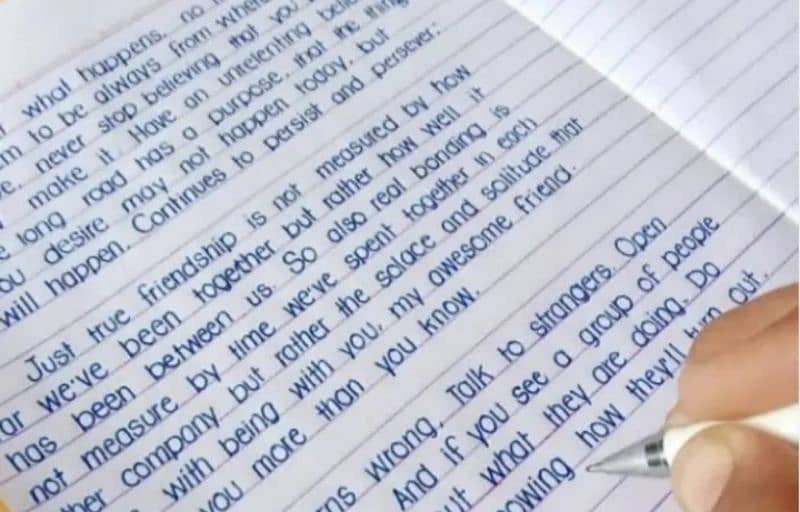 what happens, no
to be always from where
never stop believing that you
make it. Have an unrelenting
long road has a purpose, that the things
desire may not happen today, but
will happen. Continues to persist and persever.
Just true friendship is not measured by how
we've been together but rather how well it
has been between us. So also real bonding is
not measure by time we've spent together in each
company but rather the solace and solitude that
with being with you, my awesome friend.
you more than you know.
wrong. Talk to strangers. Open
And if you see a group of people
what they are doing. Do
how they'll turn out.